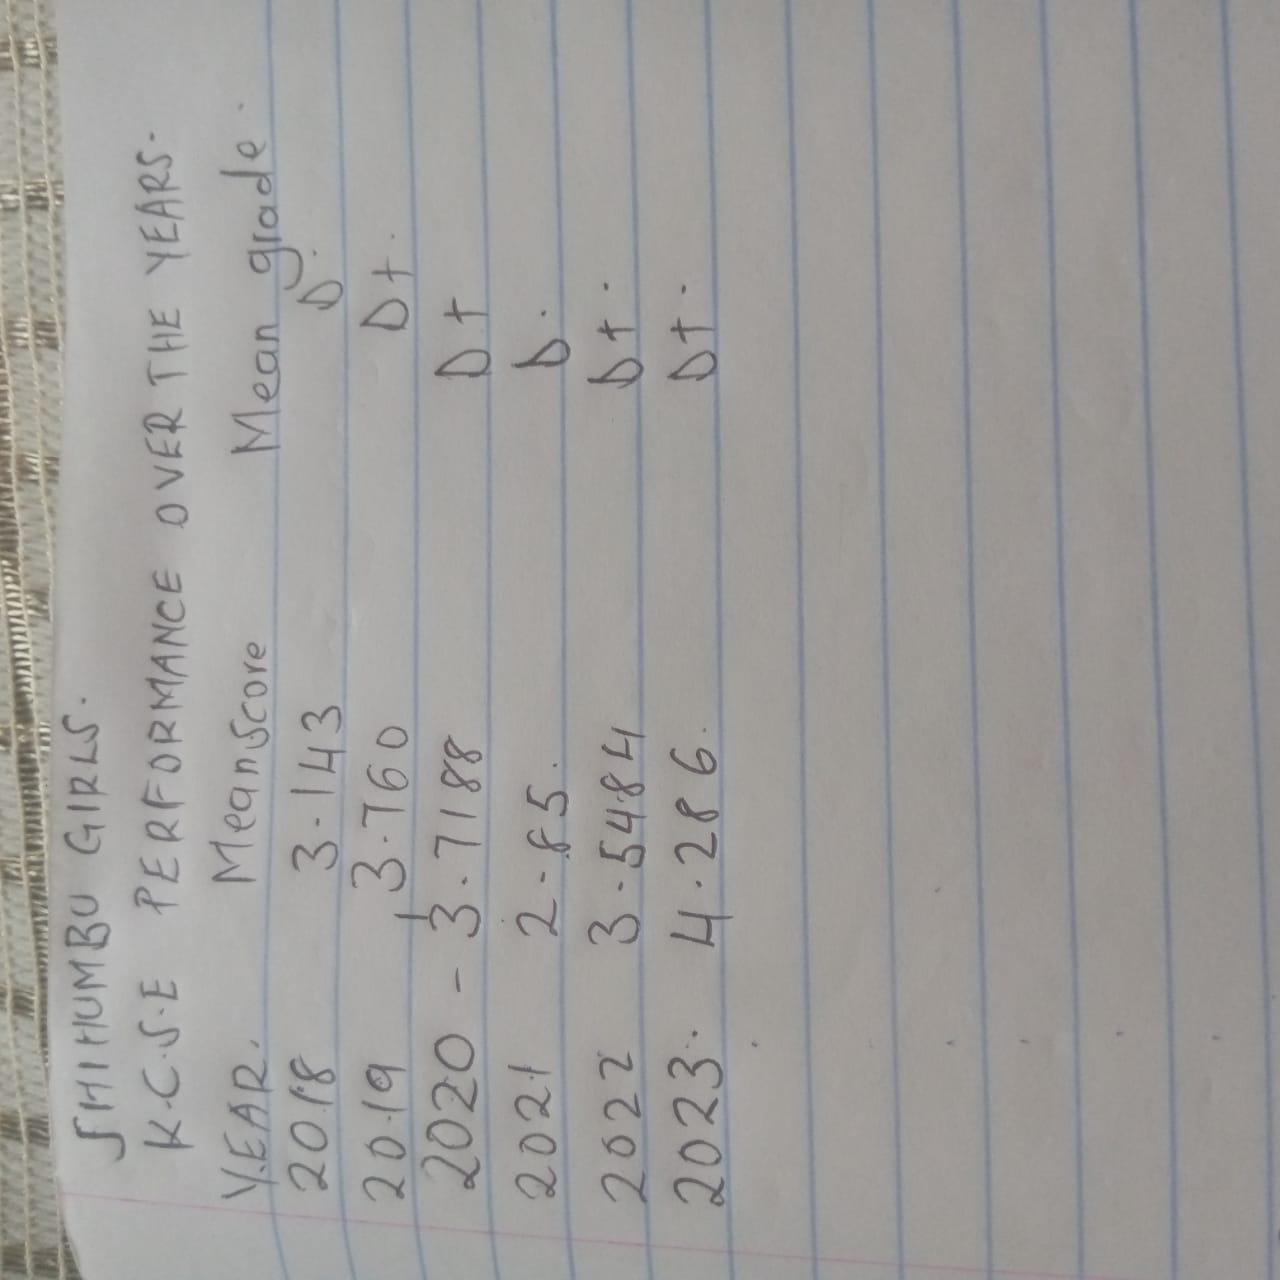 SHIHUMBU GIRLS.
K.C.S.E PERFORMANCE OVER THE YEARS.
YEAR. Meanscore Mean grade.
2018 3.143 D.
2019 3.760 D+.
2020 - 3.7188 D+
2021 2.85. D.
2022 3.5484 D+.
2023. 4.286. D+.